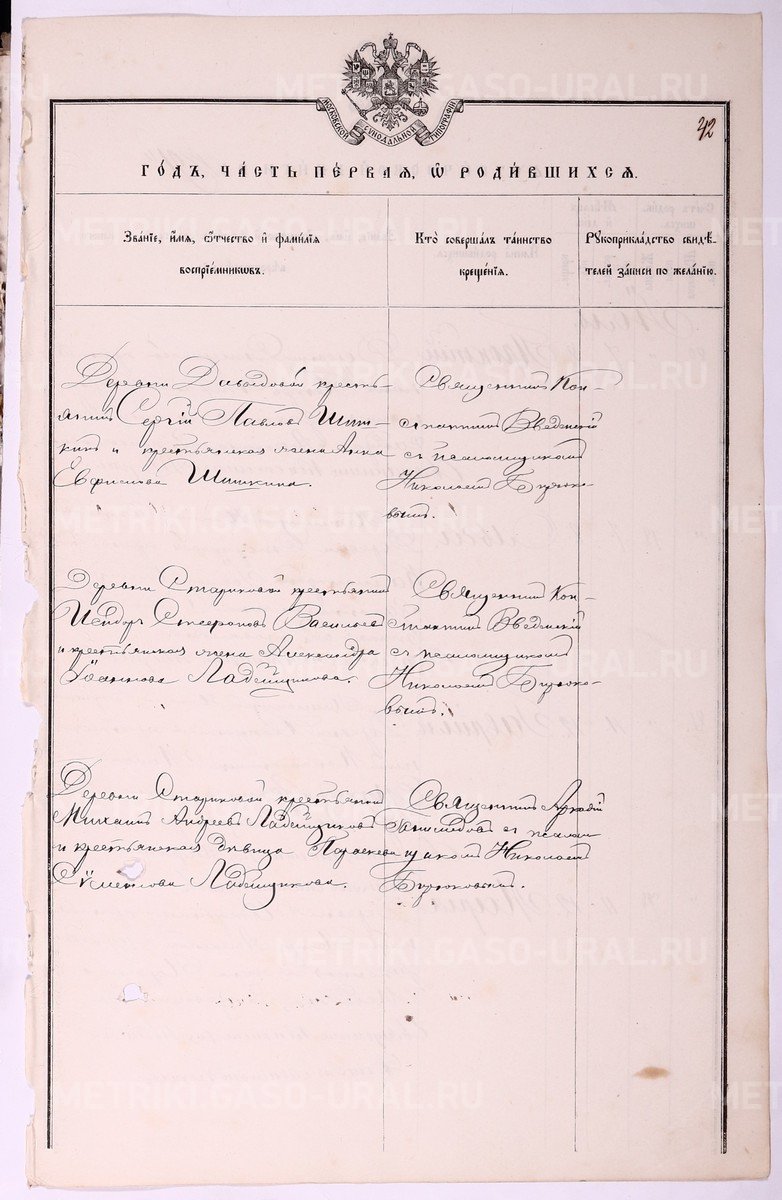 МОСКОВСКОЙ СѴНОДАЛЬНОЙ ТИПОГРАФІИ
42
ГО́ДЪ, ЧА́СТЬ ПЕ́РВАЯ, Ѿ РОДИ́ВШИХСЯ.
Зва́нїе, и҆́мя, ѻ҆́тчество и҆ фами́лїя
воспрїе́мникѡвъ.
Кто̀ соверша́лъ та́инство
креще́нїя.
Рꙋкоприкла́дство свидѣ́-
телей за́писи по жела́нїю.
Деревни Давыдовой кресть-
янинъ Сергій Павловъ Шиш-
кинъ и крестьянская жена Анна
Евфимова Шишкина.
Священникъ Кон-
стантинъ Введенскій
съ псаломщикомъ
Николаемъ Бирюко-
вымъ.
Деревни Стариковой крестьянинъ
Исидоръ Стефановъ Васильевъ
и крестьянская жена Александра
Іоаннова Ладейщикова.
Священникъ Кон-
стантинъ Введенскій
съ псаломщикомъ
Николаемъ Бирюко-
вымъ.
Деревни Стариковой крестьянинъ
Михаилъ Андреевъ Ладейщиковъ
и крестьянская дѣвица Параскева
Ладейщикова.
Священникъ Аркадій
съ псалом-
щикомъ Николаемъ
Бирюковымъ.
METRIKI.GASO-URAL.RU